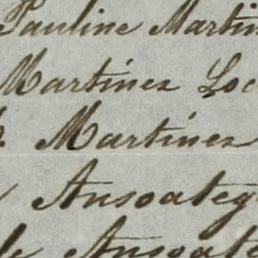 Pauline Martin
Martinez Loc
Martinez
Ansoateg
Ansoate